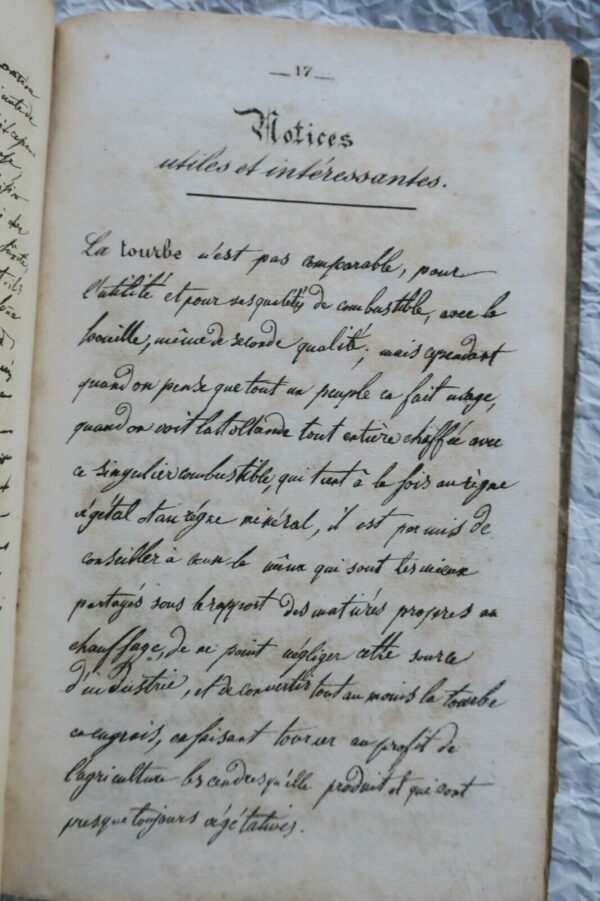 — 17 —
Notices
utiles et intéressantes.
La tourbe n'est pas comparable, pour
l'utilité et pour ses qualités de combustible, avec la
houille, même de seconde qualité; mais cependant
quand on pense que tout un peuple en fait usage,
quand on voit la Hollande tout entière chauffée avec
ce singulier combustible, qui tient à la fois au règne
végétal et au règne minéral, il est permis de
conseiller à ceux-là même qui sont les mieux
partagés sous le rapport des matières propres au
chauffage, de ne point négliger cette source
d'industrie, et de convertir tout au moins la tourbe
en engrais, en faisant tourner au profit de
l'agriculture les cendres qu'elle produit et qui sont
presque toujours végétatives.